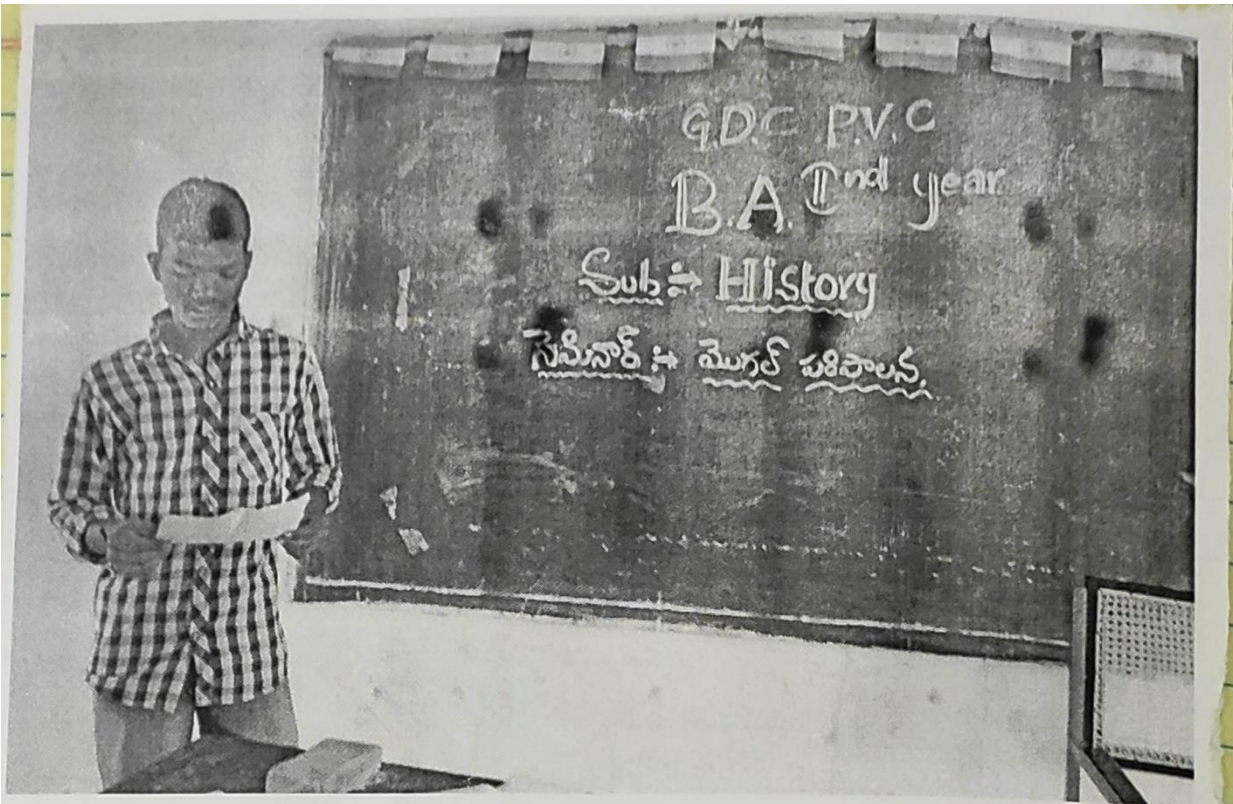 G.D.C P.V.C
B.A. IInd year
Sub :- History
సెమినార్ :- మొగల్ పరిపాలన.